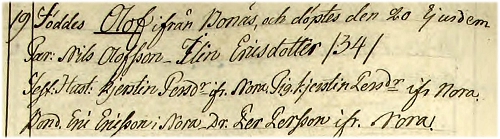 19 Föddes Olof ifrån Bonäs, och döptes den 20 Ejusdem
Par: Nils Olofsson - Elin Ericsdotter /34/
Test: Hust: Kjerstin Persdr ifr. Nora. Pig. Kjerstin Persdr ifr Nora.
Bond. Eric Ericsson i Nora - Dr. Per Persson ifr. Nora.